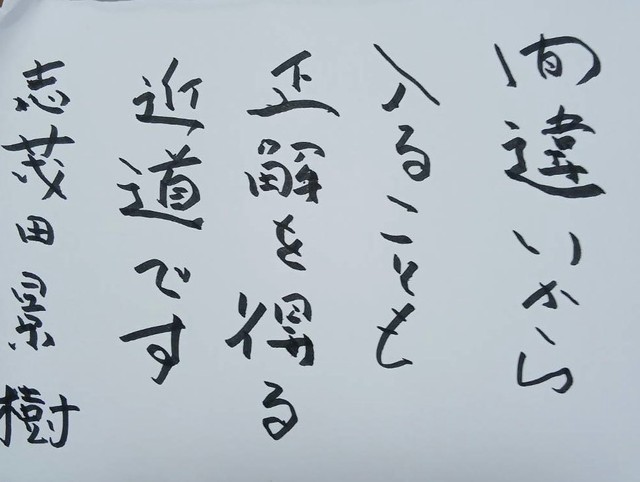 間違いから
入ることも
正解を得る
近道です
志茂田景樹